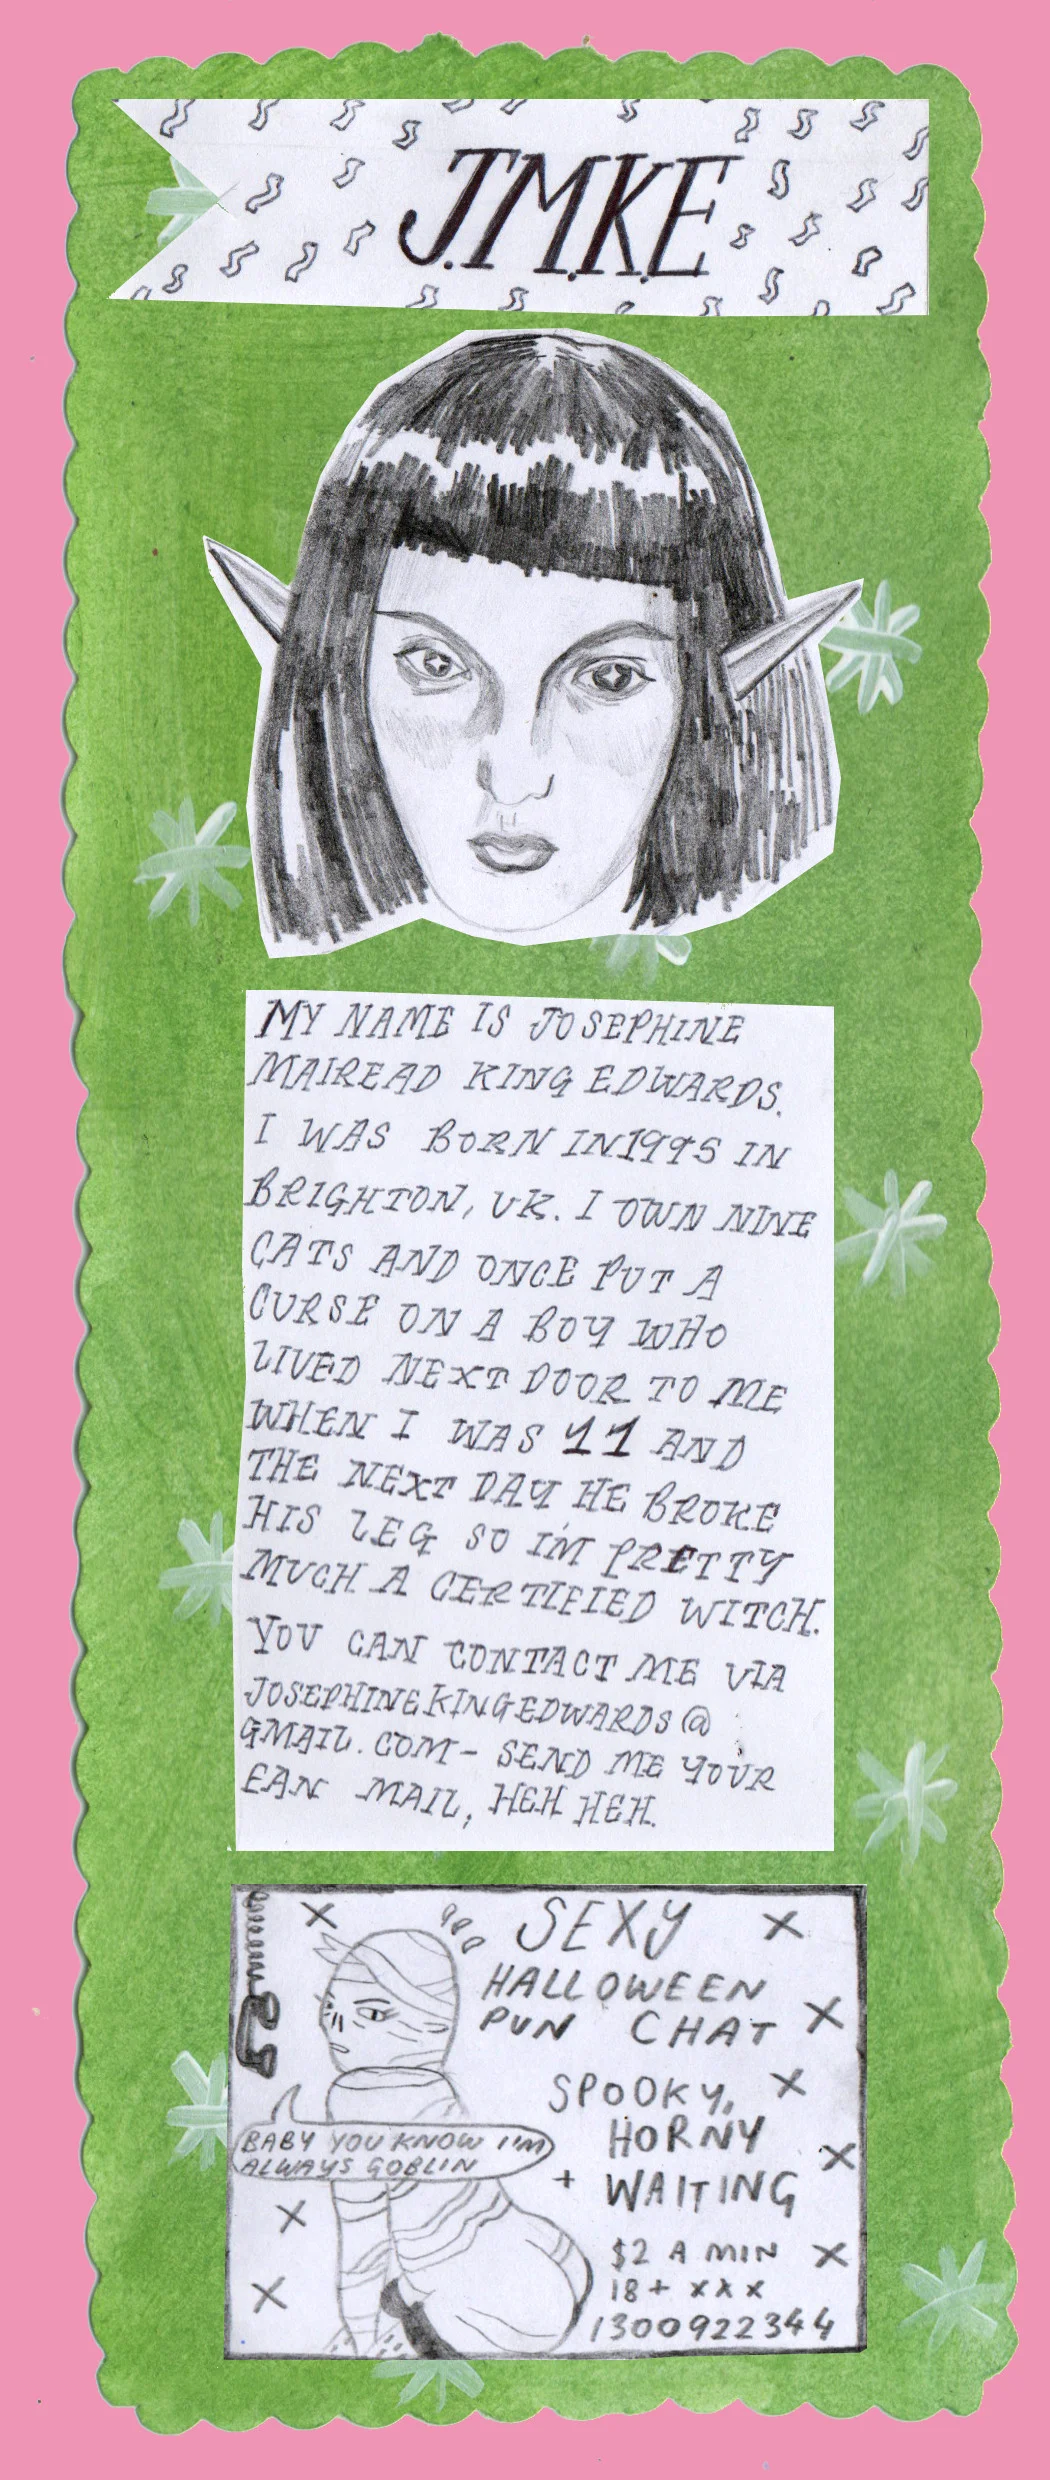 J.M.K.E
MY NAME IS JOSEPHINE
MAIREAD KING EDWARDS.
I WAS BORN IN 1995 IN
BRIGHTON, UK. I OWN NINE
CATS AND ONCE PUT A
CURSE ON A BOY WHO
LIVED NEXT DOOR TO ME
WHEN I WAS 11 AND
THE NEXT DAY HE BROKE
HIS LEG SO I'M PRETTY
MUCH A CERTIFIED WITCH.
YOU CAN CONTACT ME VIA
JOSEPHINEKINGEDWARDS@
GMAIL.COM - SEND ME YOUR
FAN MAIL, HEH HEH.
SEXY
HALLOWEEN
PUN CHAT
SPOOKY,
HORNY
+ WAITING
BABY YOU KNOW I'M
ALWAYS GOBLIN
$2 A MIN
18+ XXX
1300922344